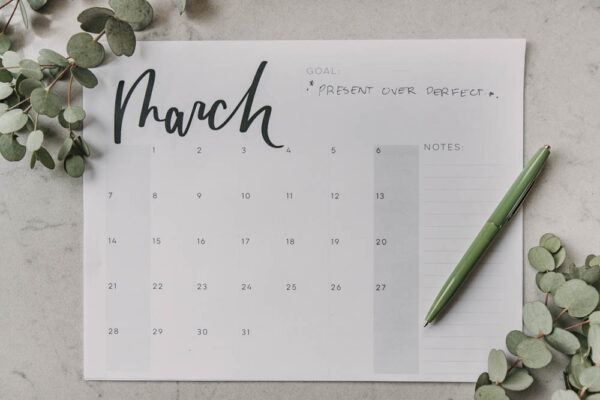 March
GOAL:
* PRESENT OVER PERFECT *
NOTES:
1 2 3 4 5 6
7 8 9 10 11 12 13
14 15 16 17 18 19 20
21 22 23 24 25 26 27
28 29 30 31